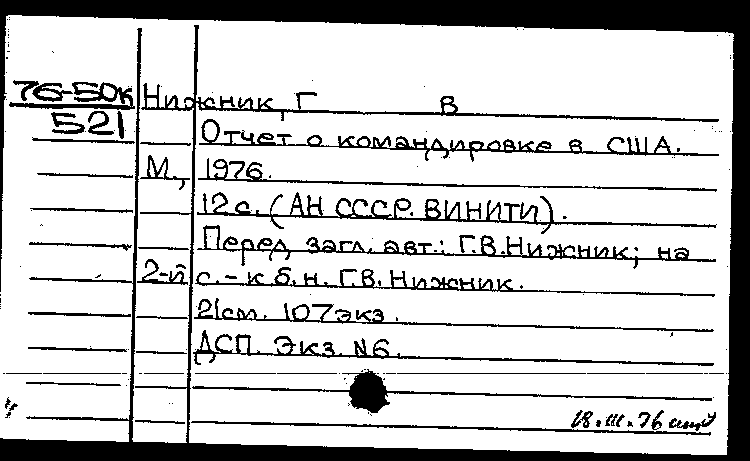 76-50к Нижник, Г В
521
Отчет о командировке в США.
М., 1976.
12 с. (АН СССР. ВИНИТИ).
Перед загл. авт.: Г.В.Нижник; на
2-й с. - к б. н. Г.В. Нижник.
21см. 107экз.
ДСП. Экз. N6.
18.III.76